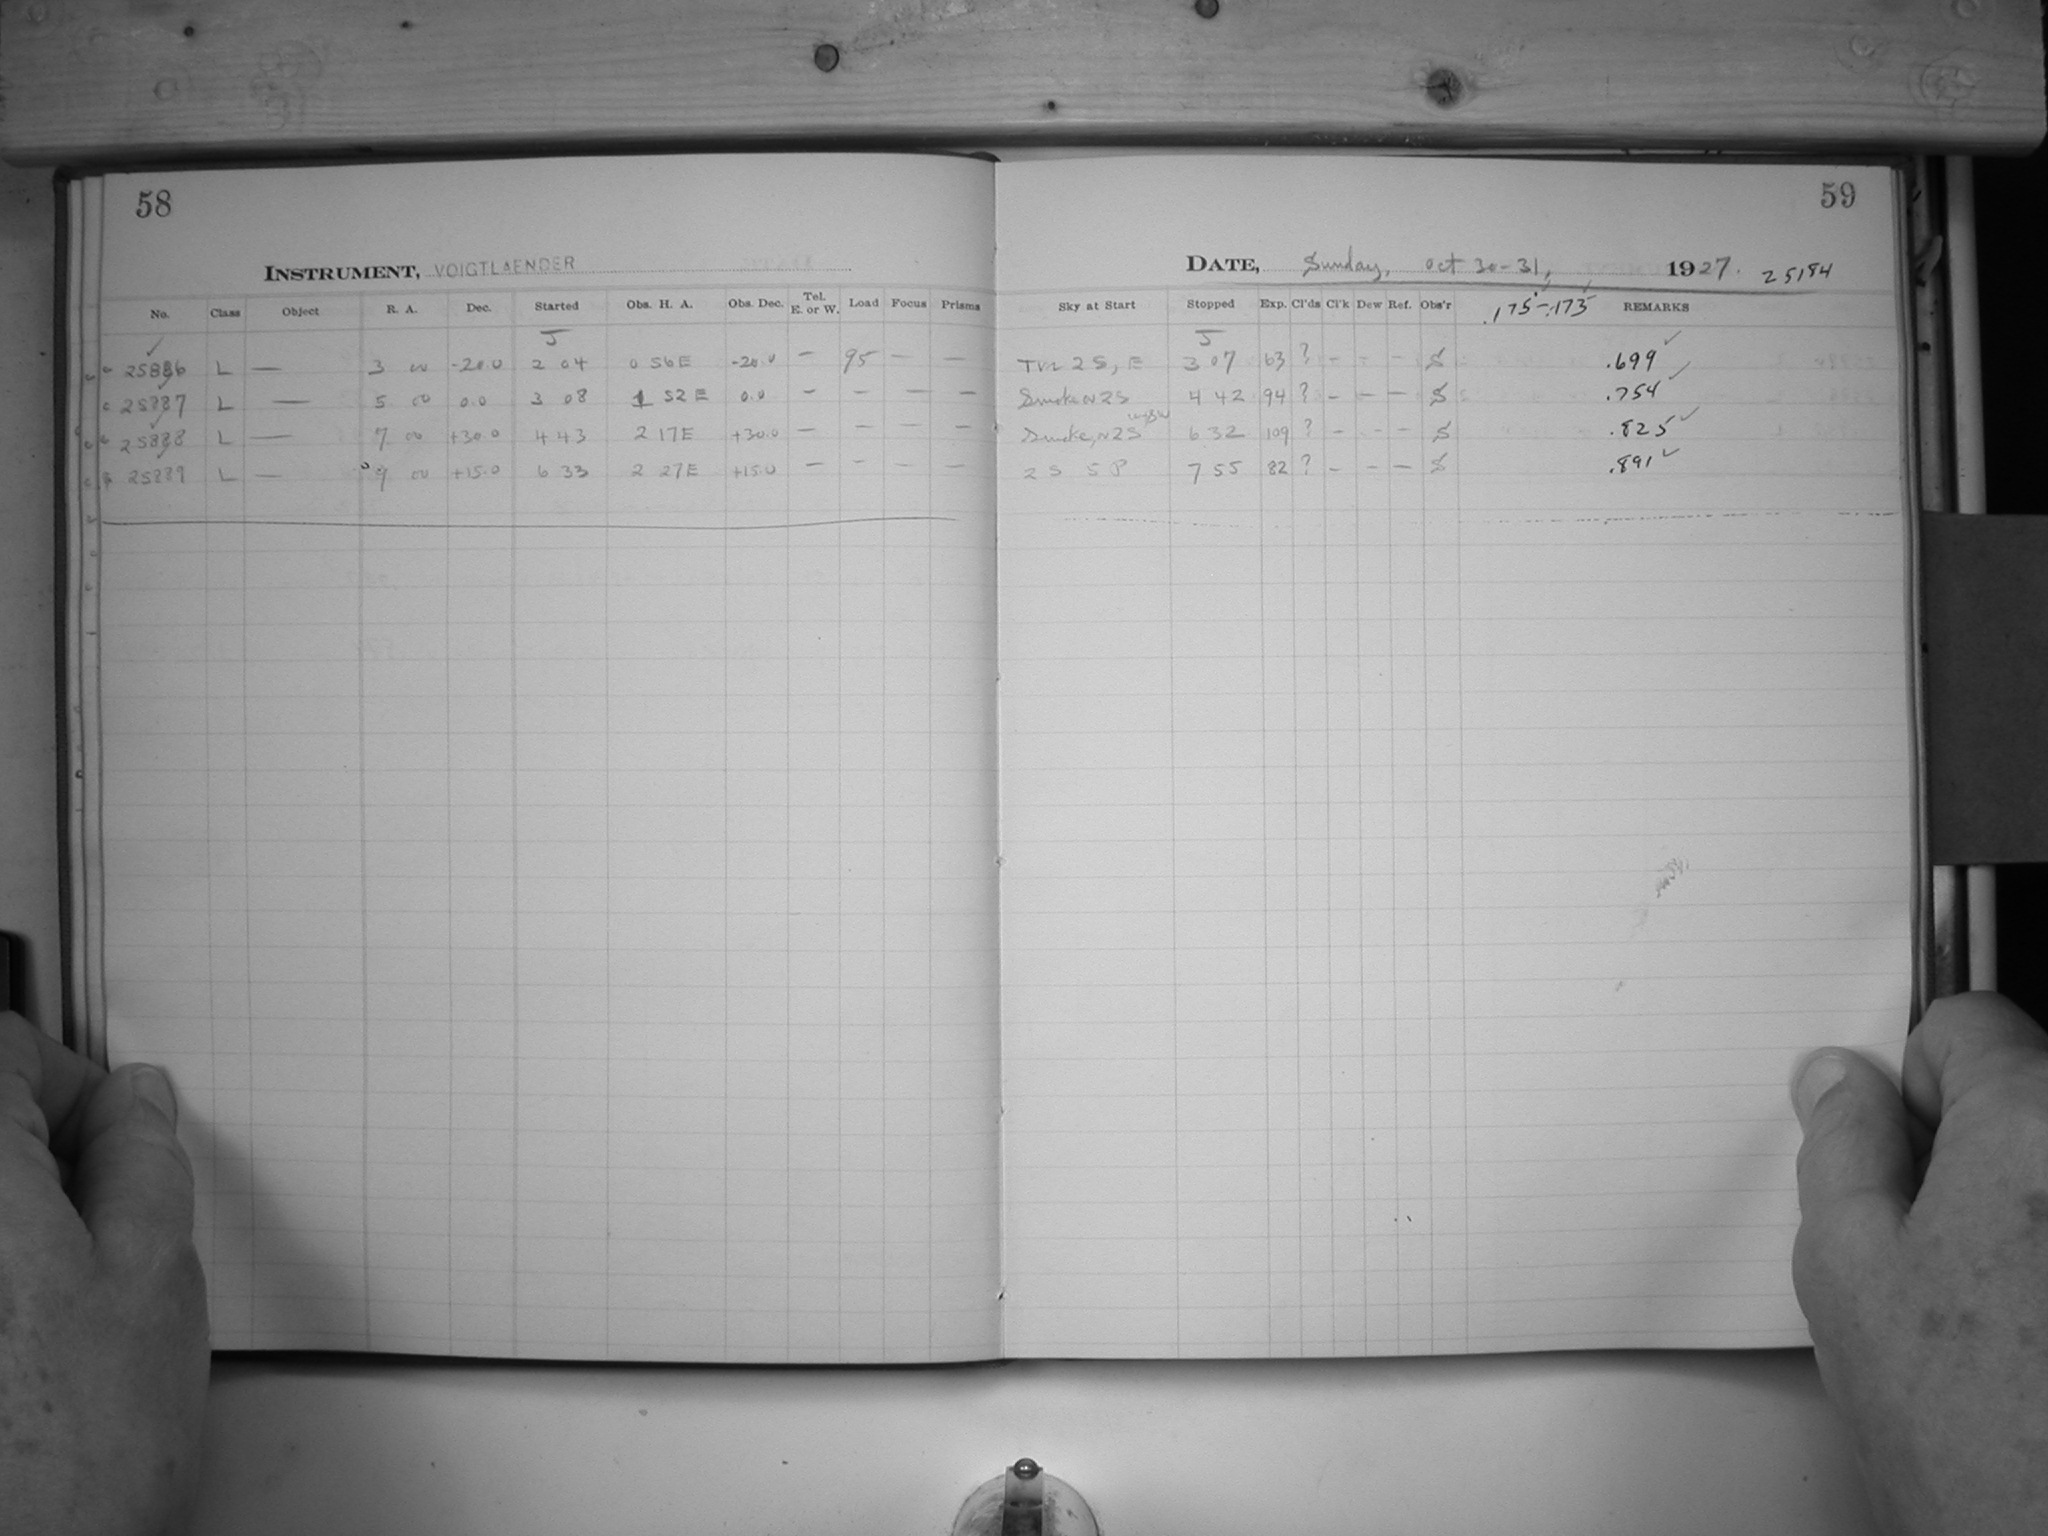 58
INSTRUMENT, VOIGTLAENDER
No. Class Object R. A. Dec. Started Obs. H. A. Obs. Dec. Tel. E. or W. Load Focus Prisms
J
25886 L — 3 00 -20.0 2 04 0 56E -20.0 — 95 — —
25887 L — 5 00 0.0 3 08 1 52E 0.0 — — — —
25888 L — 7 00 +30.0 4 43 2 17E +30.0 — — — —
25889 L — 9 00 +15.0 6 33 2 27E +15.0 — — — —
59
DATE, Sunday, Oct 30-31, 1927. 25184
Sky at Start Stopped Exp. Cl'ds Cl'k Dew Ref. Obs'r .175-.173 REMARKS
J
2S, E 3 07 63 ? - - - S .699 ✓
Smoke N2S 4 42 94 ? - - - S .754 ✓
Smoke, N2S 6 32 109 ? - - - S .825 ✓
2 S 5 P 7 55 82 ? - - - S .891 ✓